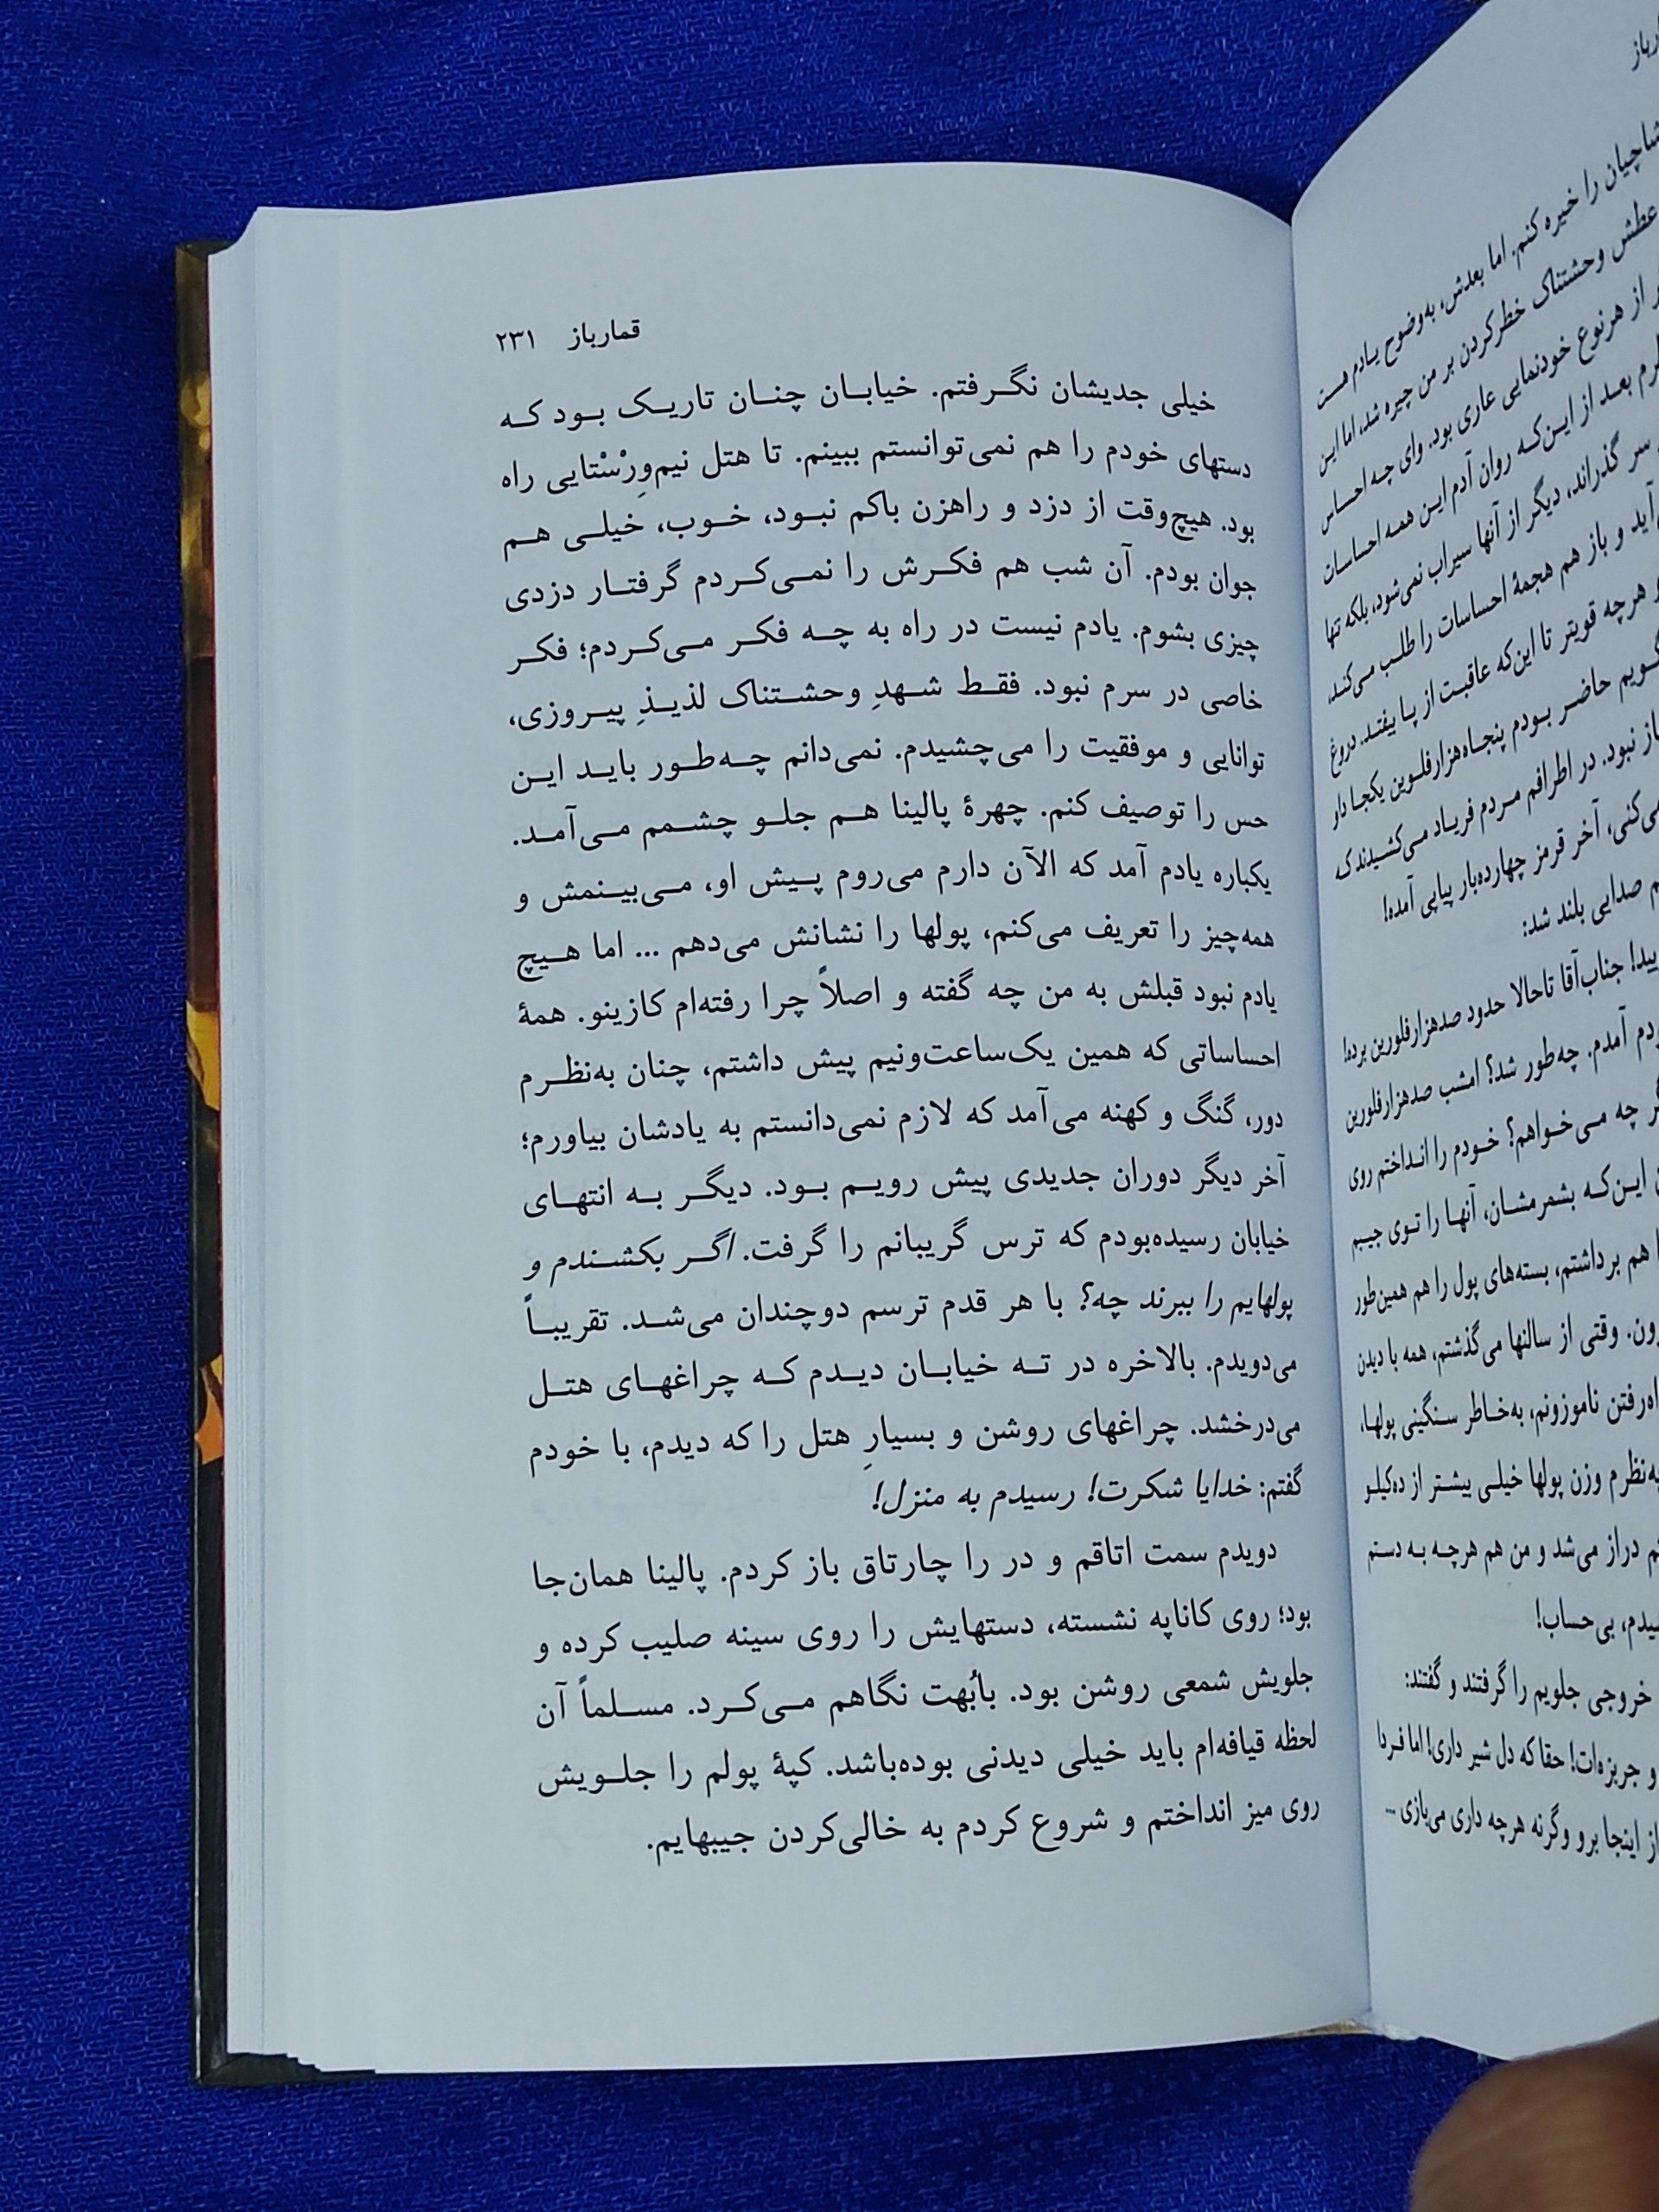 قمارباز ۲۳۱
خیلی جدیشان نگرفتم. خیابان چنان تاریک بود که
دستهای خودم را هم نمی‌توانستم ببینم. تا هتل نیم‌وِرْسْتایی راه
بود. هیچ‌وقت از دزد و راهزن باکم نبود، خوب، خیلی هم
جوان بودم. آن شب هم فکرش را نمی‌کردم گرفتار دزدی
چیزی بشوم. یادم نیست در راه به چه فکر می‌کردم؛ فکر
خاصی در سرم نبود. فقط شهدِ وحشتناک لذیذِ پیروزی،
توانایی و موفقیت را می‌چشیدم. نمی‌دانم چه‌طور باید این
حس را توصیف کنم. چهرهٔ پالینا هم جلو چشمم می‌آمد.
یکباره یادم آمد که الآن دارم می‌روم پیش او، می‌بینمش و
همه‌چیز را تعریف می‌کنم، پولها را نشانش می‌دهم ... اما هیچ
یادم نبود قبلش به من چه گفته و اصلاً چرا رفته‌ام کازینو. همهٔ
احساساتی که همین یک‌ساعت‌ونیم پیش داشتم، چنان به‌نظرم
دور، گنگ و کهنه می‌آمد که لازم نمی‌دانستم به یادشان بیاورم؛
آخر دیگر دوران جدیدی پیش رویم بود. دیگر به انتهای
خیابان رسیده‌بودم که ترس گریبانم را گرفت. اگر بکشندم و
پولهایم را ببرند چه؟ با هر قدم ترسم دوچندان می‌شد. تقریباً
می‌دویدم. بالاخره در ته خیابان دیدم که چراغهای هتل
می‌درخشد. چراغهای روشن و بسیارِ هتل را که دیدم، با خودم
گفتم: خدایا شکرت! رسیدم به منزل!
دویدم سمت اتاقم و در را چارتاق باز کردم. پالینا همان‌جا
بود؛ روی کاناپه نشسته، دستهایش را روی سینه صلیب کرده و
جلویش شمعی روشن بود. بابُهت نگاهم می‌کرد. مسلماً آن
لحظه قیافه‌ام باید خیلی دیدنی بوده‌باشد. کپهٔ پولم را جلویش
روی میز انداختم و شروع کردم به خالی‌کردن جیبهایم.
را خیره کنم. اما بعدش، به‌وضوح یادم هست
عطش وحشتناک خطرکردن بر من چیره شد، اما این
از هرنوع خودنمایی عاری بود. وای چه احساس
بعد از این‌که روان آدم این همه احساسات
سر گذراند، دیگر از آنها سیراب نمی‌شود، بلکه تنها
و باز هم هجمهٔ احساسات را طلب می‌کند،
هرچه قویتر تا این‌که عاقبت از پا بیفتد. دروغ
حاضر بودم پنجاه‌هزارفلورین یکجا دار
نبود. در اطرافم مردم فریاد می‌کشیدند که
می‌کنی، آخر قرمز چهارده‌بار پیاپی آمده!
صدایی بلند شد:
جناب‌آقا تاحالا حدود صدهزارفلورین برده!
آمدم. چه‌طور شد؟ امشب صدهزارفلورین
چه می‌خواهم؟ خودم را انداختم روی
این‌که بشمرمشان، آنها را توی جیبم
هم برداشتم، بسته‌های پول را هم همین‌طور
وقتی از سالنها می‌گذشتم، همه با دیدن
ناموزونم، به‌خاطر سنگینی پولها،
به‌نظرم وزن پولها خیلی بیشتر از ده‌کیلو
دراز می‌شد و من هم هرچه به دستم
بی‌حساب!
خروجی جلویم را گرفتند و گفتند:
و جربزه‌ات! حقا که دل شیر داری! اما فردا
از اینجا برو وگرنه هرچه داری می‌بازی ...